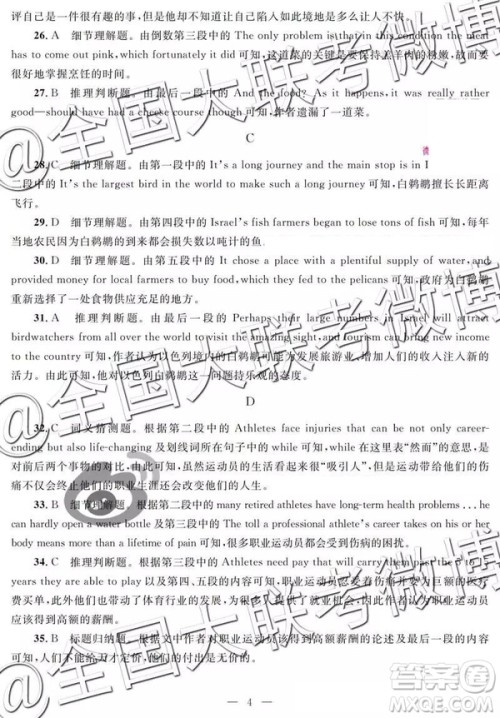 评自己是一件很有趣的事,但他却不知道让自己陷入如此境地是多么让人不快。
26. A 细节理解题。由倒数第三段中的 The only problem is that in this condition the meal
has to come out pink, which fortunately it did 可知,这道菜的关键是要保持羔羊肉的粉嫩,故而要
很好地掌握烹饪的时间。
27. B 推理判断题。由最后一段中的 And the food? As it happens, it was really rather
good—should have had a cheese course though 可知,作者遗漏了一道菜。
C
28. C 细节理解题。由第一段中的 It's a long journey and the main stop is in I
二段中的 It's the largest bird in the world to make such a long journey 可知,白鹈鹕擅长长距离
飞行。
29. D 细节理解题。由第四段中的 Israel's fish farmers began to lose tons of fish 可知,每年
当地农民因为白鹈鹕的到来都会损失数以吨计的鱼
30. D 细节理解题。由第五段中的 It chose a place with a plentiful supply of water, and
provided money for local farmers to buy food, which they fed to the pelicans 可知,政府为白鹈鹕
重新选择了一处食物供应充足的地方。
31. A 推理判断题。由最后一段中的 Perhaps their large numbers in Israel will attract
birdwatchers from all over the world to visit the amazing sight, and tourism can bring new income
to the country 可知,作者认为以色列境内的白鹈鹕可发展旅游业,增加人们的收入,注入新的活
力。由此可知,他对以色列白鹈鹕这一问题持乐观的态度。
D
32. C 词义猜测题。根据第二段中的 Athletes face injuries that can be not only career-
ending but also life-changing 及划线词所在句子中的 while 可知,while 在这里表“然而”的意思,是
对前后两个事物的对比,由此可知,虽然职业运动员的生活看起来很“吸引人”,但是运动带给他们的伤
痛不仅会终止他们的职业生涯还会改变他们的人生。
33. B 细节理解题。根据第二段中的 many retired athletes have long-term health problems… he
can hardly open a water bottle 及第三段中的 The toll a professional athlete's career takes on his or her
body means more than a lifetime of pain 可知,很多职业运动员受到伤病的困扰。
34. C 推理判断题。根据第三段中的 Athletes need pay that will carry them past the 5 to 15
years they are able to play 以及第四、五段的内容可知,职业运动员因为运动寿命短暂并伴有巨额的医疗
费用买单,他们也带动了体育行业的发展,为一大批人创造了就业机会,由此可推知作者认为职业运动员
应该得到高额的薪酬。
35. B 标题归纳题。根据文中作者对职业运动员的论述及最后一段的内
容可知,人们不能给天才定价,他们的付出是无价的。
— 4 —
@全国大联考微博
@全国大联考微博
@全国大联考微博
答案圈